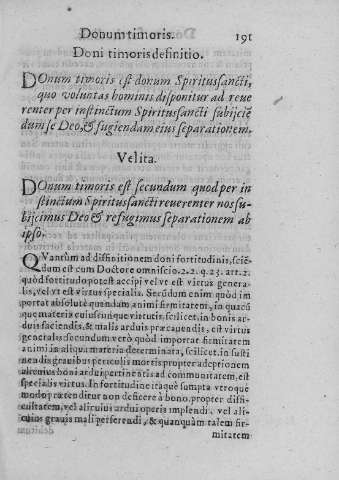 Donum timoris. 191
Doni timoris definitio.
DOnum timoris est donum Spiritussancti,
quo voluntas hominis disponitur ad reue
renter per instinctum Spiritussancti subijciẽ
dum se Deo, & fugiendam eius separationem.
Vel ita.
DOnum timoris est secundum quod per in
stinctum Spiritussancti reuerenter nos su-
bijcimus Deo & refugimus separationem ab
ipso.
QVantum ad diffinitionem doni fortitudinis, sciẽ-
dum est cum Doctore omniscio. 2.2. q. 23. art. 2.
quòd fortitudo potest accipi vel vt est virtus genera-
lis, vel vt est virtus specialis. Secũdum enim quòd im
portat absolutè quendam animi firmitatem, in quacũ
que materia cuiuscunque virtutis, scilicet, in bonis ar-
duis faciendis, & malis arduis præcauendis, est virtus
generalis secundum verò quòd importat firmitatem
animi in aliqua materia determinata, scilicet, in susti
nendis grauibus periculis mortis propter adeptionem
alicuius boni ardui pertinentis ad communitatem, est
specialis virtus. In fortitudine itaque sumpta vtroque
modo prætenditur non deficere à bono, propter diffi-
cultatem, vel alicuius ardui operis implendi, vel ali-
cuius grauis mali perferendi, & quanquàm talem fir-
mitatem